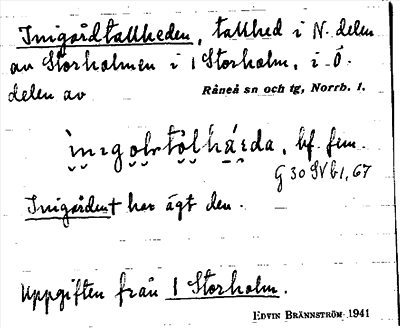 Inigårdtallheden, tallhed i N. delen
av Storholmen i 1 Storholm, i Ö.
delen av Råneå sn och tg, Norrb. l.
bf. fem.
G 30 SV b1, 67
Inigården † har ägt den.
Uppgiften från 1 Storholm.
EDVIN BRÄNNSTRÖM 1941